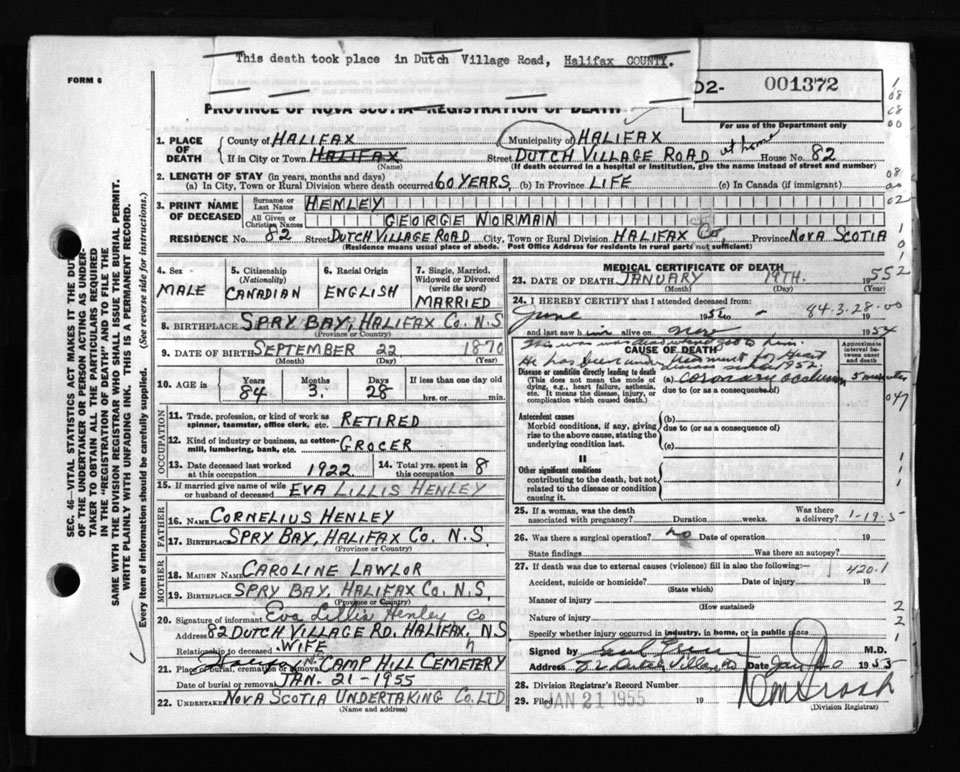 This death took place in Dutch Village Road, Halifax COUNTY.
FORM 6
D2- 001372
PROVINCE OF NOVA SCOTIA—REGISTRATION OF DEATH
For use of the Department only
1. PLACE OF DEATH
County of HALIFAX Municipality of HALIFAX
If in City or Town HALIFAX Street DUTCH VILLAGE ROAD at home House No. 82
(Name) (If death occurred in a hospital or institution, give the name instead of street and number)
2. LENGTH OF STAY (in years, months and days)
(a) In City, Town or Rural Division where death occurred 60 YEARS (b) In Province LIFE (c) In Canada (if immigrant)
3. PRINT NAME OF DECEASED
Surname or Last Name HENLEY
All Given or Christian Names GEORGE NORMAN
RESIDENCE No. 82 Street DUTCH VILLAGE ROAD City, Town or Rural Division HALIFAX Co Province NOVA SCOTIA
(Residence means usual place of abode. Post Office Address for residents in rural parts not sufficient)
4. Sex MALE
5. Citizenship (Nationality) CANADIAN
6. Racial Origin ENGLISH
7. Single, Married, Widowed or Divorced (write the word) MARRIED
8. BIRTHPLACE SPRY BAY, HALIFAX Co. N.S
(Province or Country)
9. DATE OF BIRTH SEPTEMBER 22 1870
(Month) (Day) (Year)
10. AGE Years 84 Months 3. Days 28 If less than one day hrs. or min.
OCCUPATION
11. Trade, profession, or kind of work as spinner, teamster, office clerk, etc. RETIRED
12. Kind of industry or business, as cotton-mill, lumbering, bank, etc. GROCER
13. Date deceased last worked at this occupation 1922 14. Total yrs. spent in this occupation 8
15. If married give name of wife or husband of deceased EVA LILLIS HENLEY
FATHER
16. NAME CORNELIUS HENLEY
17. BIRTHPLACE SPRY BAY, HALIFAX Co. N.S.
(Province or Country)
MOTHER
18. MAIDEN NAME CAROLINE LAWLOR
19. BIRTHPLACE SPRY BAY, HALIFAX Co. N.S.
(Province or Country)
20. Signature of informant Eva Lillis Henley
Address 82 DUTCH VILLAGE RD. HALIFAX, Co N.S
Relationship to deceased WIFE
21. Place of burial, cremation or removal CAMP HILL CEMETERY
Date of burial or removal JAN. 21-1955
22. UNDERTAKER NOVA SCOTIA UNDERTAKING Co. LTD
(Name and address)
MEDICAL CERTIFICATE OF DEATH
23. DATE OF DEATH JANUARY 19TH. 1955
(Month) (Day) (Year)
24. I HEREBY CERTIFY that I attended deceased from:
June 1952 to - 19
84.3.28.00
and last saw him alive on Nov 1954
This man was dead when I got to him.
He has been under treatment for Heart disease since 1952
CAUSE OF DEATH
Approximate interval between onset and death
Disease or condition directly leading to death (a) coronary occlusion 5 minutes
(This does not mean the mode of dying, e.g., heart failure, asthenia, etc. It means the disease, injury, or complication which caused death.)
due to (or as a consequence of)
047
Antecedent causes
Morbid conditions, if any, giving rise to the above cause, stating the underlying condition last.
(b)
due to (or as a consequence of)
(c)
II
Other significant conditions
contributing to the death, but not related to the disease or condition causing it.
25. If a woman, was the death associated with pregnancy? Duration weeks. Was there a delivery?
1-19-5
26. Was there a surgical operation? no Date of operation 19
State findings Was there an autopsy?
27. If death was due to external causes (violence) fill in also the following:—
420.1
Accident, suicide or homicide? Date of injury 19
(State which)
Manner of injury
(How sustained)
Nature of injury
Specify whether injury occurred in industry, in home, or in public place
Signed by M.D.
Address 82 Dutch Village Rd Date Jan 20 1955
28. Division Registrar's Record Number
29. Filed JAN 21 1955 19
(Division Registrar)
SEC. 46—VITAL STATISTICS ACT MAKES IT THE DUTY OF THE UNDERTAKER OR PERSON ACTING AS UNDERTAKER TO OBTAIN ALL THE PARTICULARS REQUIRED IN THE "REGISTRATION OF DEATH" AND TO FILE THE SAME WITH THE DIVISION REGISTRAR WHO SHALL ISSUE THE BURIAL PERMIT.
WRITE PLAINLY WITH UNFADING INK. THIS IS A PERMANENT RECORD.
Every item of information should be carefully supplied. (See reverse side for instructions.)